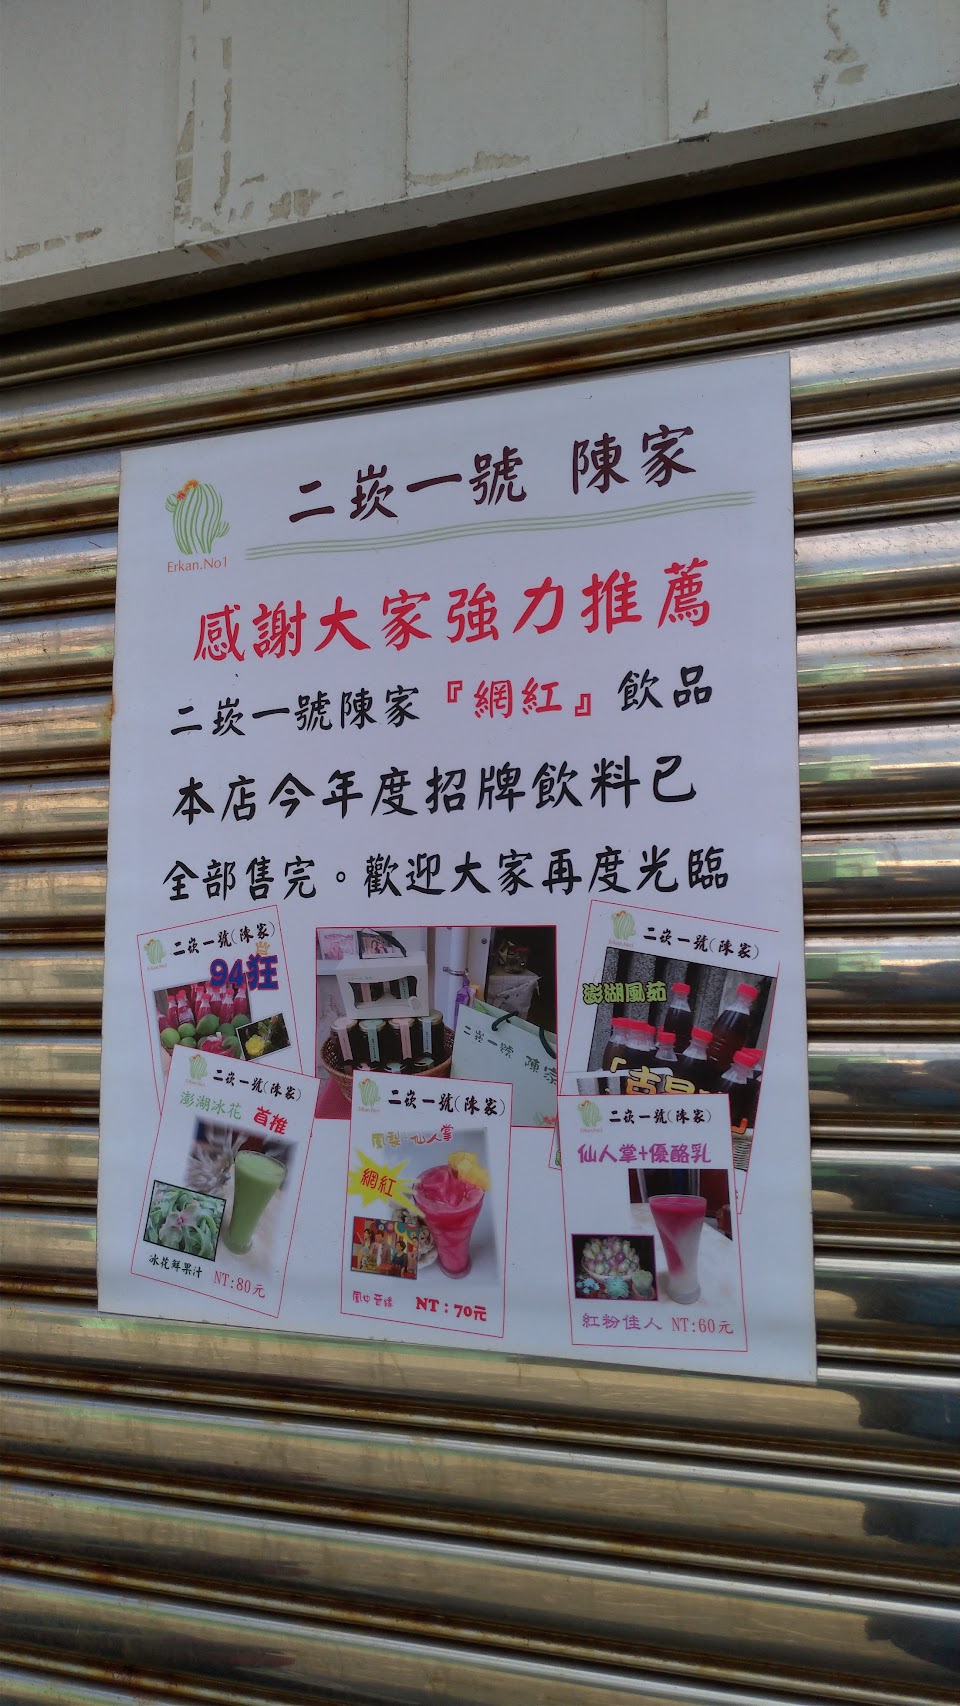 二崁一號 陳家
Erkan.No1
感謝大家強力推薦
二崁一號陳家『網紅』飲品
本店今年度招牌飲料已
全部售完。歡迎大家再度光臨
二崁一號(陳家)
94狂
二崁一號 陳家
二崁一號(陳家)
澎湖風茹
二崁一號(陳家)
澎湖冰花 首推
冰花鮮果汁 NT:80元
二崁一號(陳家)
鳳梨+仙人掌
網紅
NT:70元
二崁一號(陳家)
仙人掌+優酪乳
紅粉佳人 NT:60元